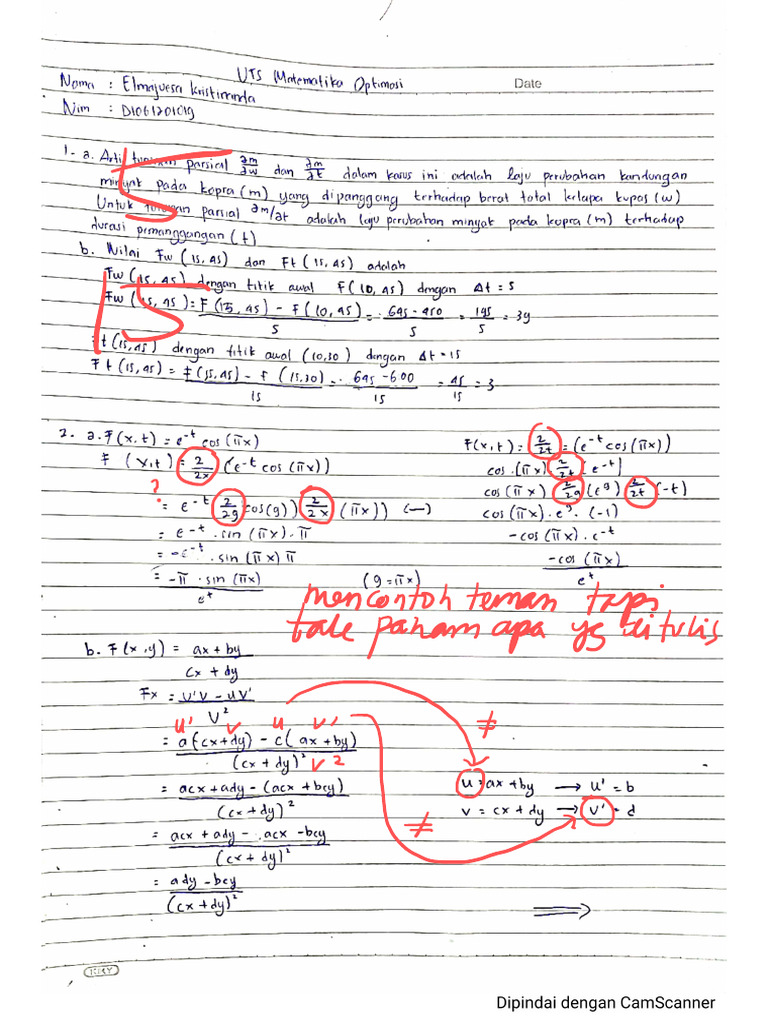 UTS Matematika Optimasi
Date
Nama : Elmajuesa Kristinanda
Nim : D1061201019
1. a. Arti turunan parsial ∂m/∂w dan ∂m/∂t dalam karus ini adalah laju perubahan kandungan
minyak pada kopra (m) yang dipanggang terhadap berat total kelapa kupas (w)
Untuk turunan parsial ∂m/∂t adalah laju perubahan minyak pada kopra (m) terhadap
durasi pemanggangan (t)
b. Nilai Fw (15, 45) dan Ft (15, 45) adalah
Fw (15, 45) dengan titik awal F(10, 45) dengan Δt = 5
Fw (15, 45) = F(15, 45) - f(10, 45) / 5 = 645 - 450 / 5 = 195 / 5 = 39
t(15,45) dengan titik awal (10,30) dengan Δt = 15
Ft (15, 45) = f(15, 45) - f (15,30) / 15 = 645 - 600 / 15 = 45 / 15 = 3
5
5
2. a. F(x,t) = e^-t cos (πx)
F (x,t) = 2/2x (e^-t cos (πx))
?
= e^-t 2/2g cos(g)) 2/2x (πx)) (-)
= e^-t . sin (πx) . π
= -e^-t . sin (πx) π
= -π . sin (πx) / e^t (g = πx)
F(x,t) = 2/2t = (e^-t cos(πx))
cos (πx) 2/2t (e^-t)
cos (πx) 2/2g (e^g) 2/2t (-t)
cos (πx) . e^g . (-1)
- cos (πx) . e^-t
-cos (πx) / e^t
mencontoh teman tapi
tale paham apa yg ditulis
b. F(x,y) = ax + by / cx + dy
Fx = u'v - uv' / v²
u' v u v'
= a(cx+dy) - c(ax+by) / (cx + dy)²
v²
= acx + ady - (acx + bcy) / (cx + dy)²
= acx + ady - acx - bcy / (cx + dy)²
= ady - bcy / (cx + dy)²
≠
u = ax + by → u' = b
v = cx + dy → v' = d
≠
⇒
KIKY
Dipindai dengan CamScanner